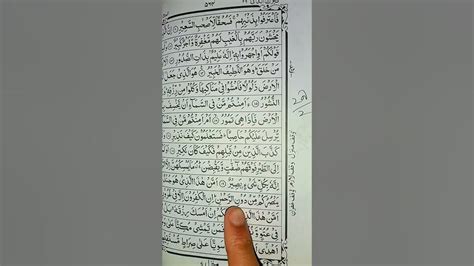 ٥٦٣
فَاعْتَرَفُوْا بِذَنْۢبِهِمْ فَسُحْقًا لِّاَصْحٰبِ السَّعِيْرِ ١١
يَخْشَوْنَ رَبَّهُمْ بِالْغَيْبِ لَهُمْ مَّغْفِرَةٌ وَّاَجْرٌ كَبِيْرٌ
قَوْلَكُمْ اَوِ اجْهَرُوْا بِهٖ اِنَّهٗ عَلِيْمٌۢ بِذَاتِ الصُّدُوْرِ
مَنْ خَلَقَ وَهُوَ اللَّطِيْفُ الْخَبِيْرُ هُوَ الَّذِيْ جَعَلَ
الْاَرْضَ ذَلُوْلًا فَامْشُوْا فِيْ مَنَاكِبِهَا وَكُلُوْا مِنْ
النُّشُوْرُ ءَاَمِنْتُمْ مَّنْ فِي السَّمَآءِ اَنْ يَّخْسِفَ
الْاَرْضَ فَاِذَا هِيَ تَمُوْرُ اَمْ اَمِنْتُمْ مَّنْ فِي السَّ
يُّرْسِلَ عَلَيْكُمْ حَاصِبًا فَسَتَعْلَمُوْنَ كَيْفَ نَذِيْرِ
كَذَّبَ الَّذِيْنَ مِنْ قَبْلِهِمْ فَكَيْفَ كَانَ نَكِيْرِ
اِلَى الطَّيْرِ فَوْقَهُمْ صٰٓفّٰتٍ وَّيَقْبِضْنَ مَا يُمْسِكُهُنَّ
اِنَّهٗ بِكُلِّ شَيْءٍۢ بَصِيْرٌ اَمَّنْ هٰذَا الَّذِيْ هُوَ جُنْدٌ
يَنْصُرُكُمْ مِّنْ دُوْنِ الرَّحْمٰنِ اِنِ الْكٰفِرُوْنَ اِلَّا فِيْ
اَمَّنْ هٰذَا الَّذِيْ يَرْزُقُكُمْ اِنْ اَمْسَكَ رِزْقَهٗ بَلْ
فِيْ عُتُوٍّ وَّنُفُوْرٍ اَفَمَنْ يَّمْشِيْ مُكِبًّا عَلٰى
اَهْدٰٓى اَمَّنْ يَّمْشِيْ سَوِيًّا عَلٰى صِرَاطٍ